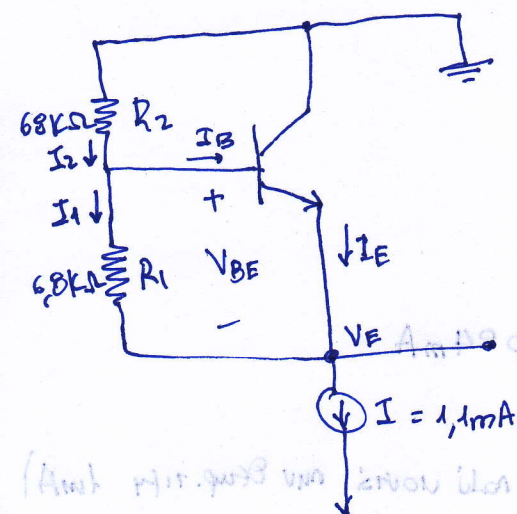 68KΩ R2
I2 IB
I1 +
6,8KΩ R1 VBE IE
−
VE
I = 1,1mA